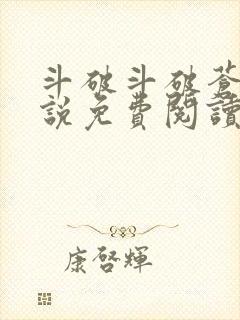 斗破斗破蒼
說免費閱讀
康啓輝